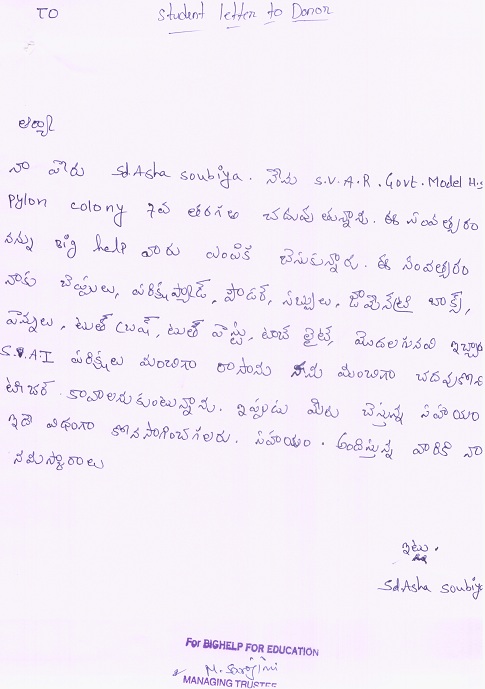 TO
Student letter to Donor
అయ్యా
నా పేరు SdAsha Soubiya. నేను S.V.A.R. Govt. Model His
Pylon colony 7వ తరగతి చదువు తున్నాను. ఈ సంవత్సరం
నన్ను Big help వారు ఎంపిక చేసుకున్నారు. ఈ సంవత్సరం
నాకు చెప్పులు, పరిక్షప్యాడ్, పౌడర్, సబ్బులు, జామెన్ట్రి బాక్స్,
పెన్నులు, టుత్ బ్రష్, టుత్ పేస్టు, టార్చ్ లైట్, మొదలగునవి ఇచ్చారు
S.A I పరిక్షలు మంచిగా రాసాను నేను మంచిగా చదువుకొని
టిచర్ కావాలనుకుంటున్నాను. ఇప్పుడు మీరు చేస్తున్న సహయం
ఇదే విధంగా కొనసాగించగలరు. సహయం. అందిస్తున్న వారికి నా
నమస్కారాలు
ఇట్లు.
SdAsha Soubiya
For BIGHELP FOR EDUCATION
M. Sarojini
MANAGING TRUSTEE